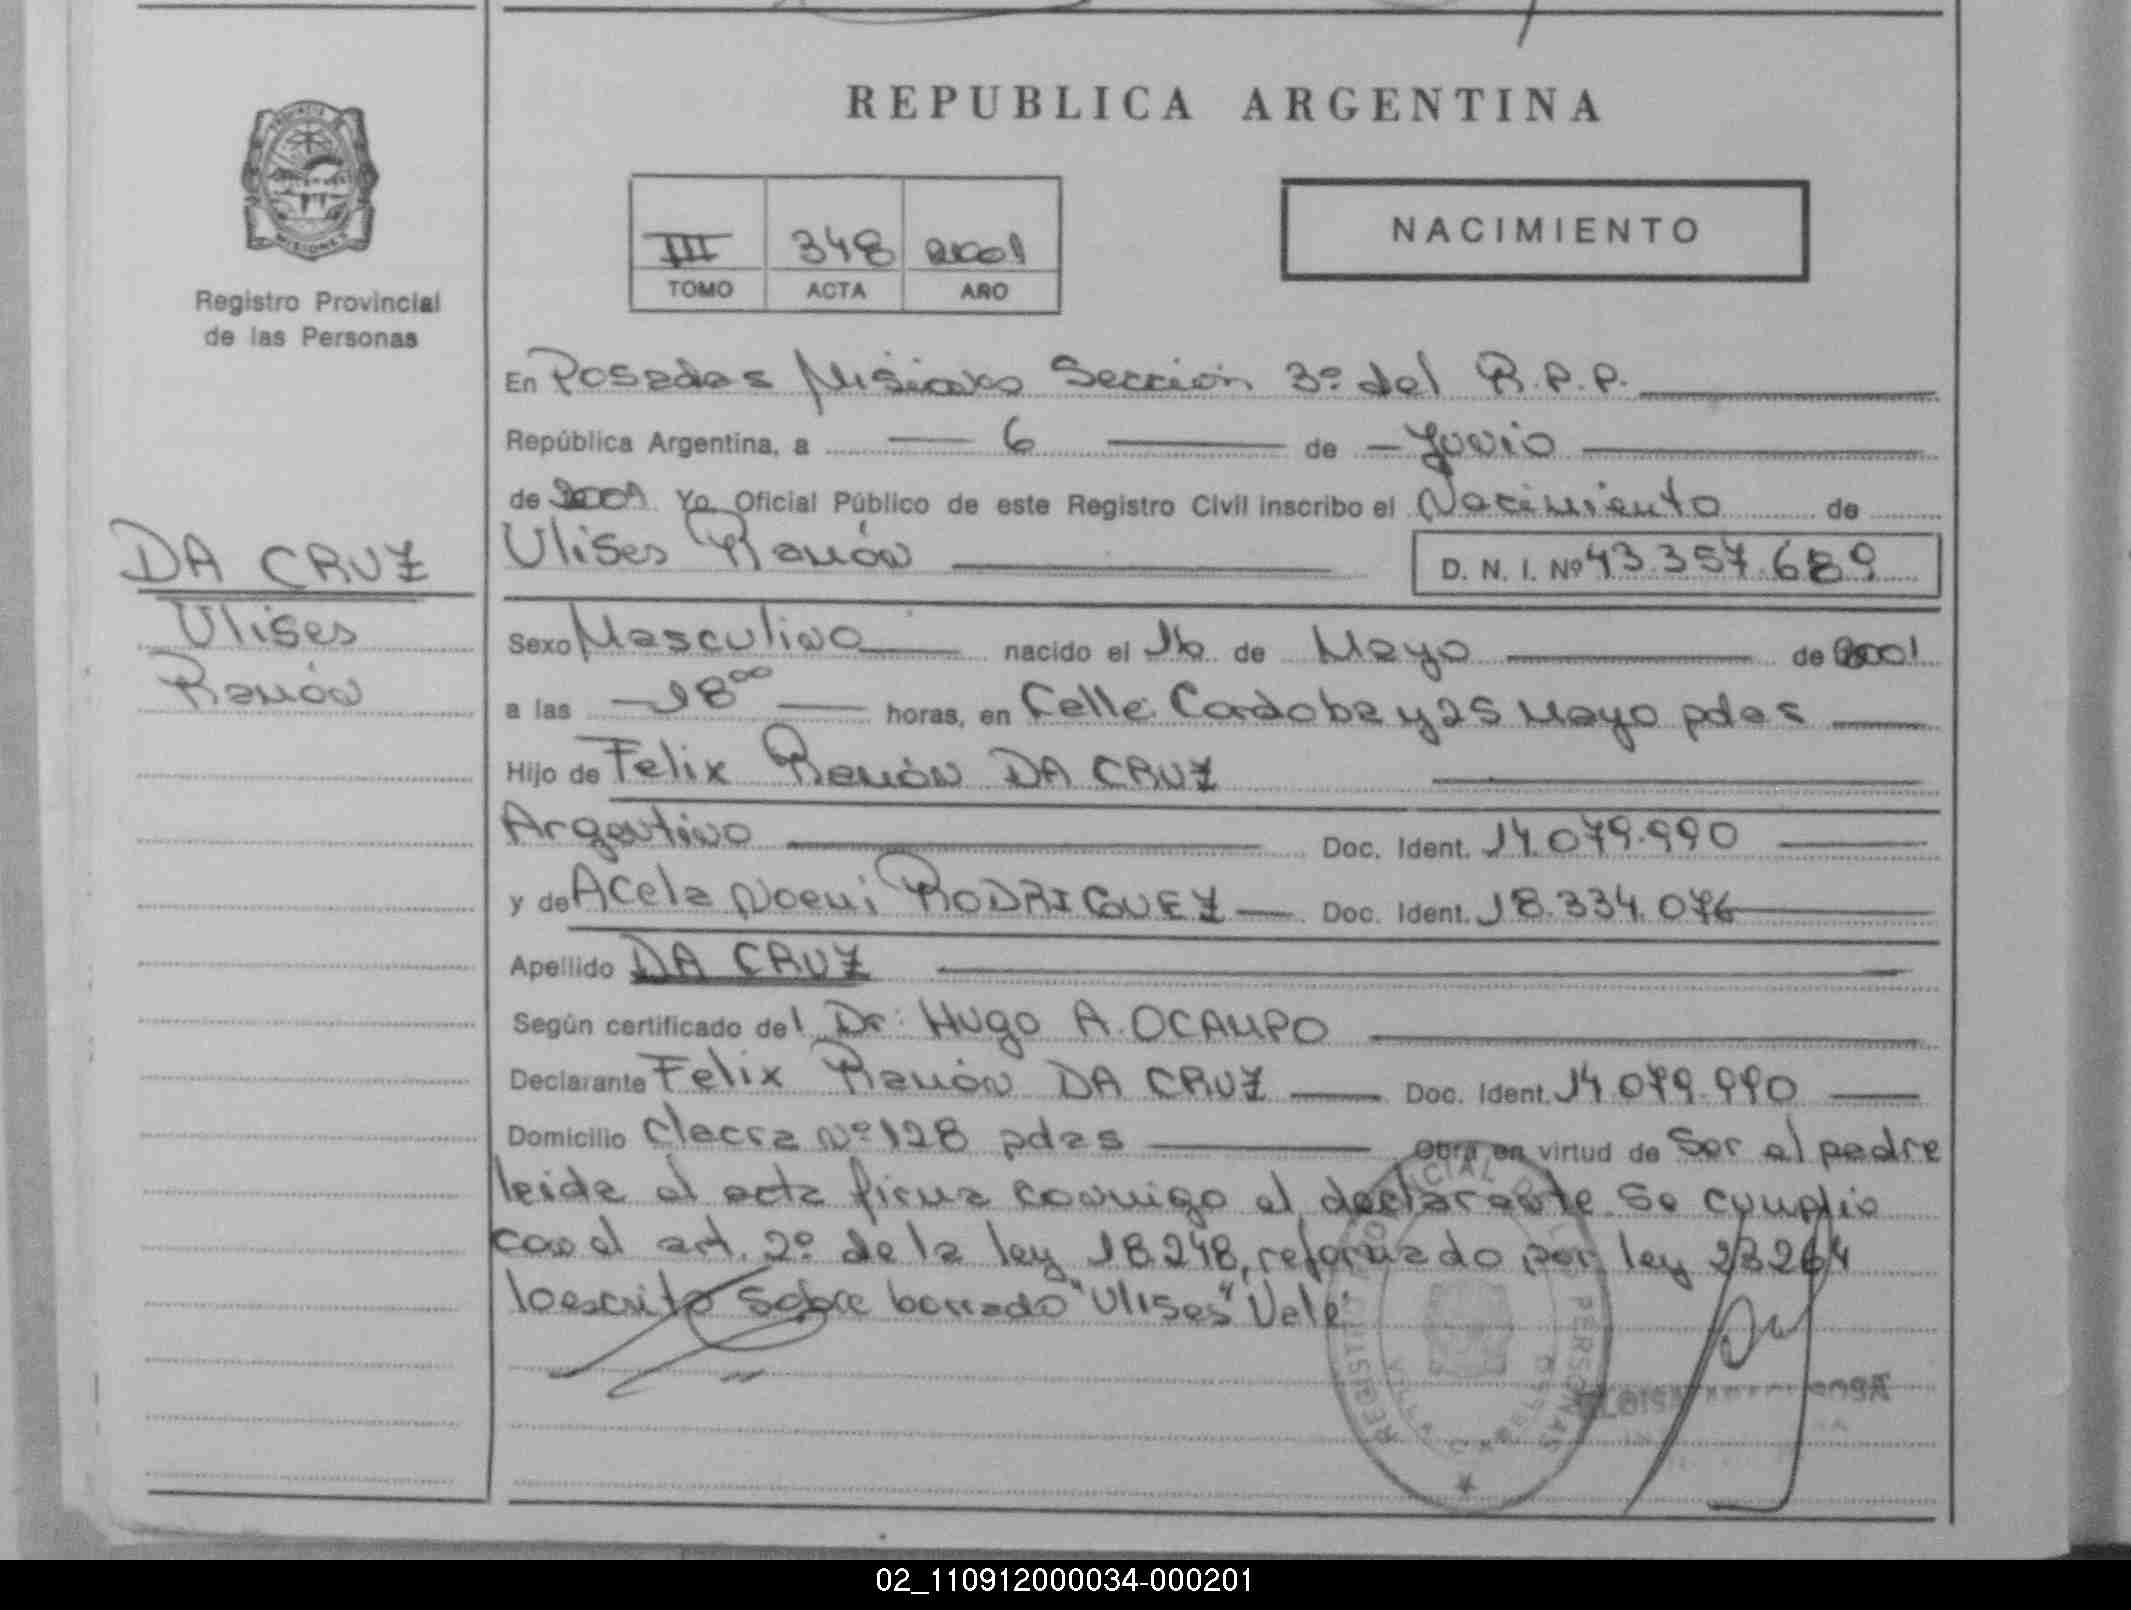 REPUBLICA ARGENTINA
III 348 2001
TOMO ACTA AÑO
NACIMIENTO
Registro Provincial
de las Personas
En Posadas Misiones Sección 3º del R.P.P.
República Argentina, a 6 de Junio
de 2001 Yo Oficial Público de este Registro Civil inscribo el Nacimiento de
Ulises Ramón D. N. I. Nº 43.357.689
DA CRUZ
Ulises
Ramón
Sexo Masculino nacido el 16 de Mayo de 2001
a las 18 00 horas, en Calle Cordoba y 25 Mayo pdas
Hijo de Felix Ramón DA CRUZ
Argentino Doc. Ident. 14.079.990
y de Acela Noemi RODRIGUEZ Doc. Ident. 18.334.076
Apellido DA CRUZ
Según certificado del Dr. Hugo A. OCAMPO
Declarante Felix Ramón DA CRUZ Doc. Ident. 14.079.990
Domicilio Chacra Nº 128 pdas Obra en virtud de Ser el padre
leida el acta firma conmigo el declarante. Se cumplio
con el art. 2º de la ley 18.248, reformado por ley 23264
lo escrito sobre borrado "Ulises" Vale.
REGISTRO PERSONAS
02_110912000034-000201